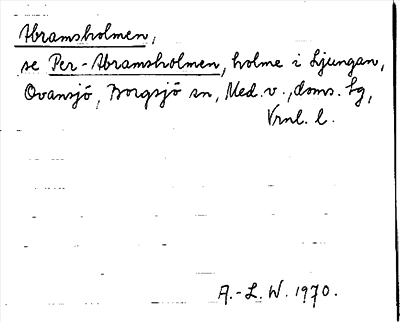 Abramsholmen,
se Per-Abramsholmen, holme i Ljungan,
Ovansjö, Borgsjö sn, Med. v., doms. lg,
Vrnl. l.
A.-L. W. 1970.